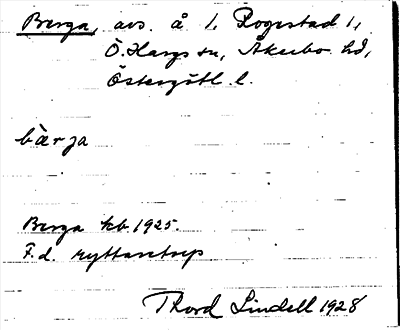 Berga, avs. å 1, Rogestad 1,
Ö. Hargs sn, Åkerbo hd,
Östergötl. l.
bärja
Berga kb 1925.
F.d. ryttaretorp
Thord Lindell 1928